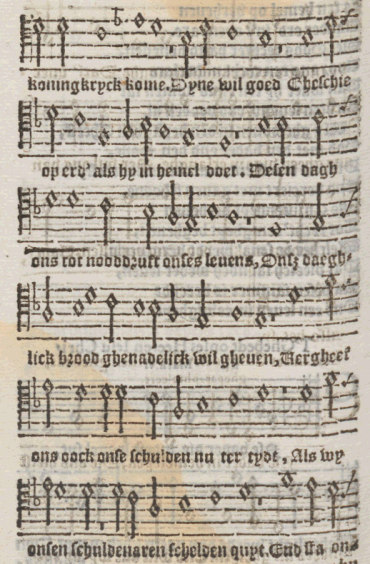 koningkryck kome. Dyne wil goed Gheschie
op erd' als hy in hemel doet. Desen dagh
ons tot nooddruft onses levens, Onsz daegh-
lick brood ghenadelick wil gheven, Vergheef
ons oock onse schulden nu ter tydt, Als wy
onsen schuldenaren schelden quyt. End sta ons